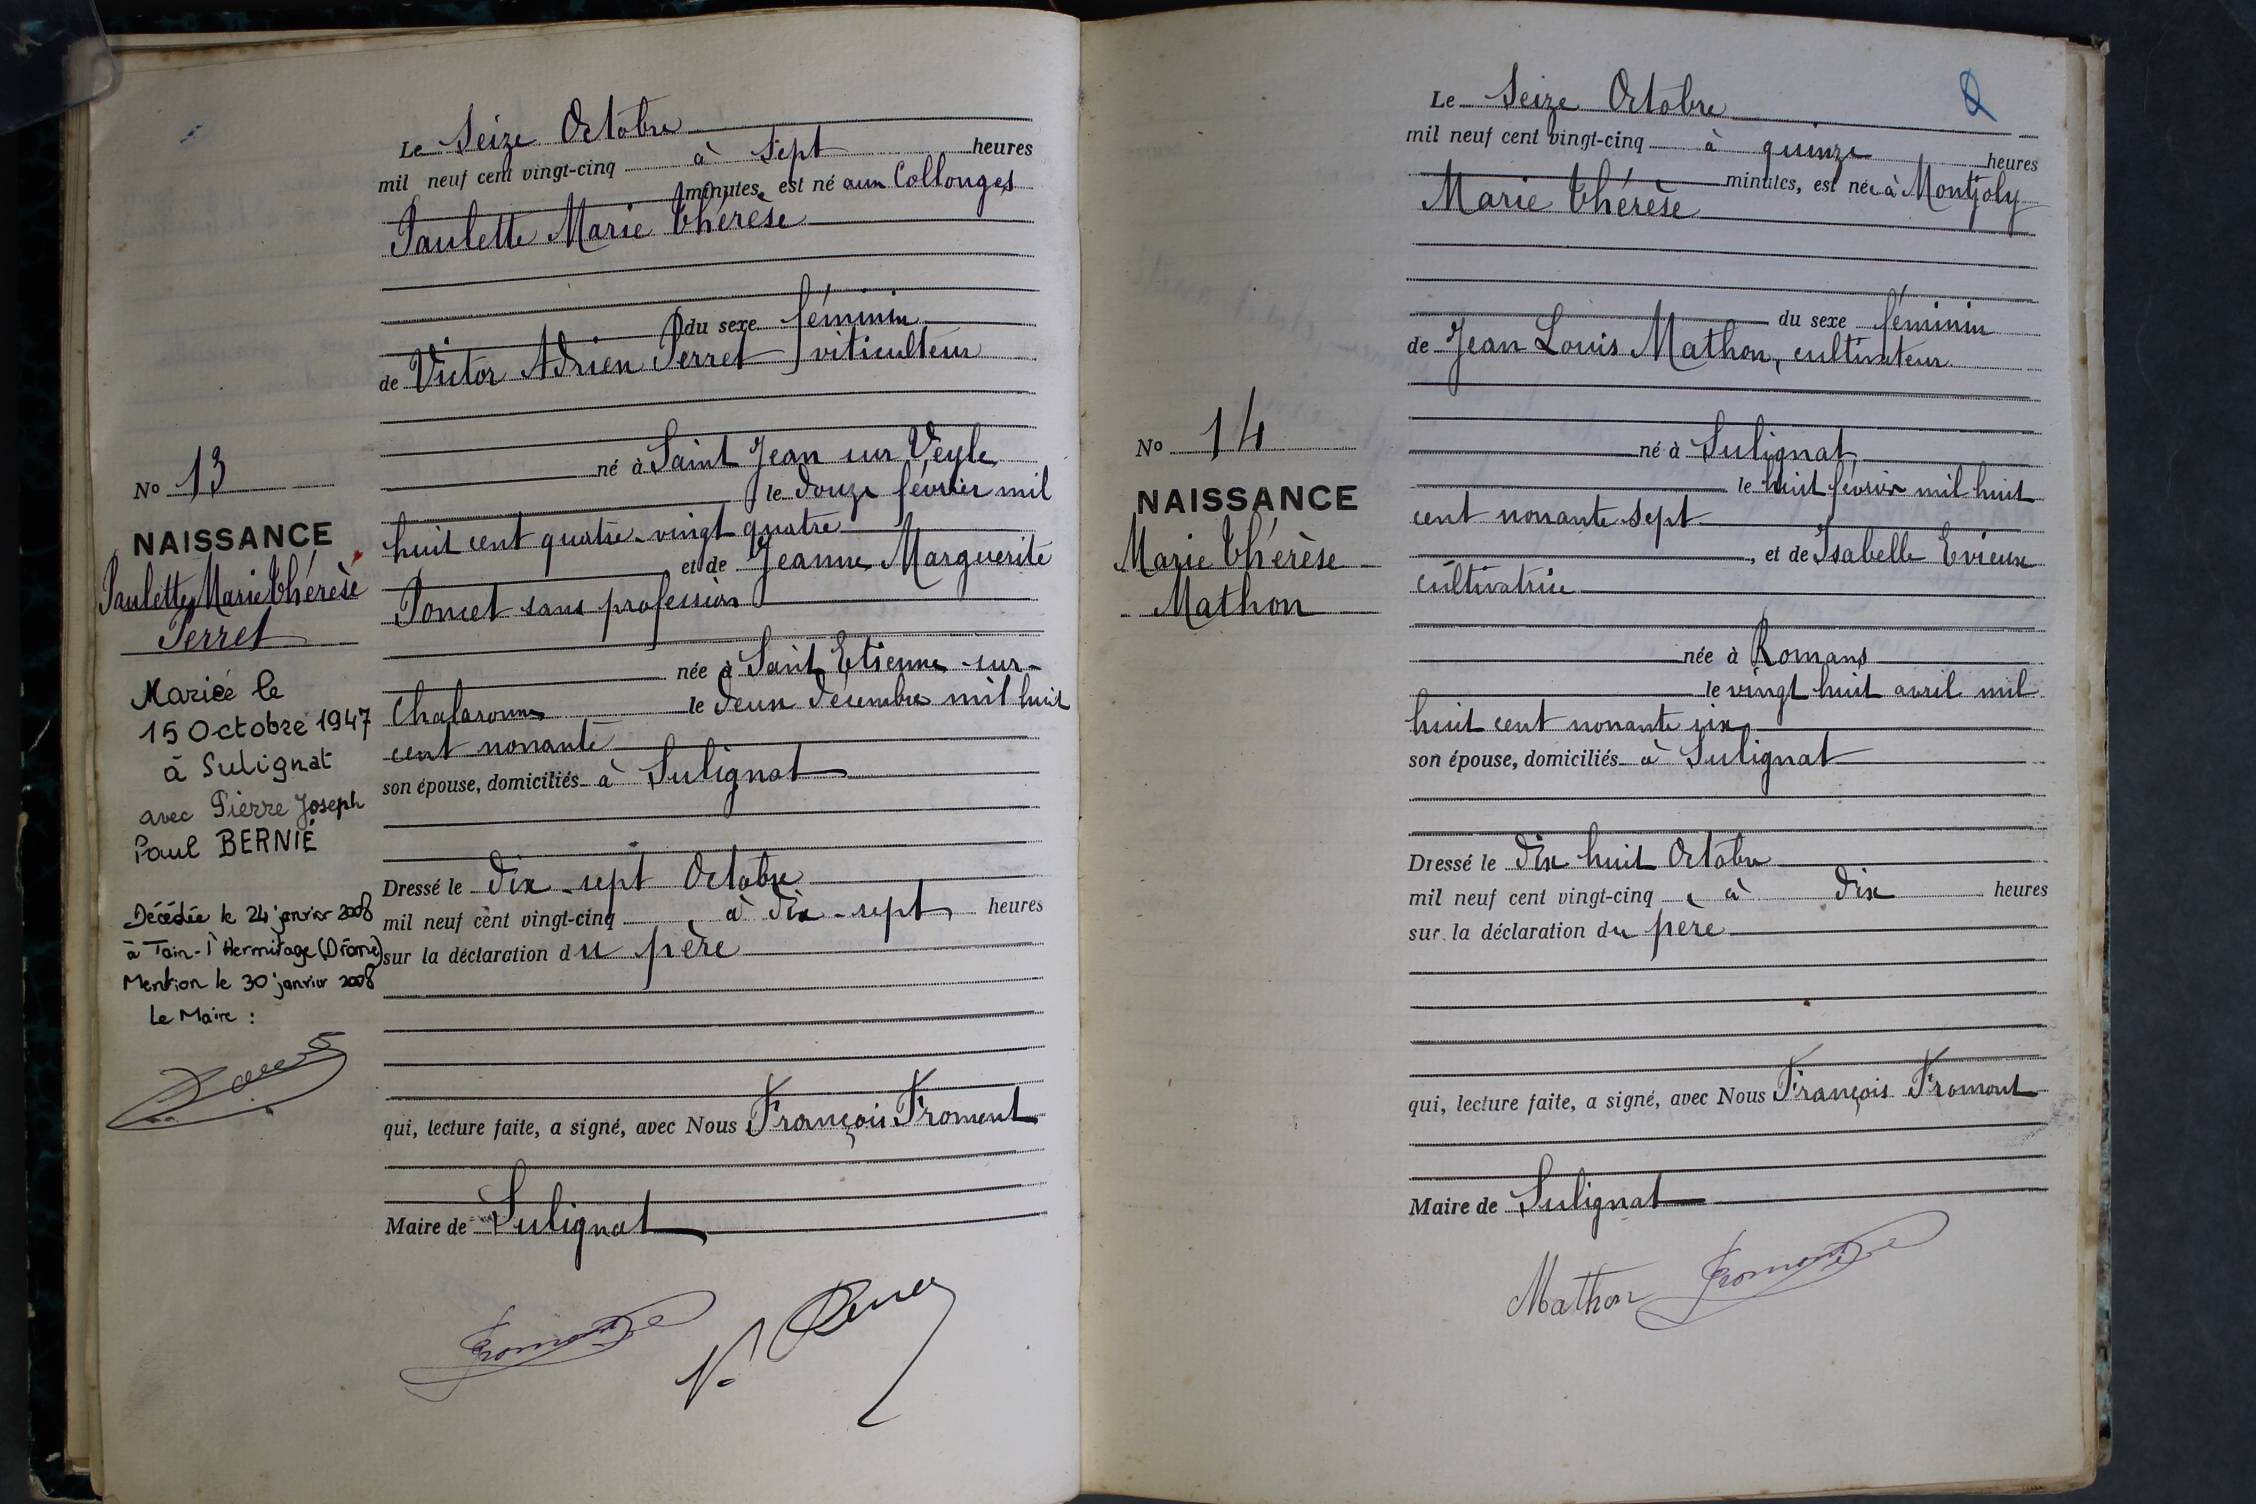 Le Seize Octobre
mil neuf cent vingt-cinq à sept heures
minutes, est né aux Collonges
Paulette Marie Thérèse
du sexe féminin
de Victor Adrien Perret, viticulteur
né à Saint Jean sur Veyle
le douze février mil
huit cent quatre-vingt quatre
et de Jeanne Marguerite
Poncet sans profession
née à Saint Etienne-sur-
Chalaronne le deux décembre mil huit
cent nonante
son épouse, domiciliés à Sulignat
Dressé le dix-sept Octobre
mil neuf cent vingt-cinq, à dix-sept heures
sur la déclaration du père
qui, lecture faite, a signé, avec Nous François Fromont
Maire de Sulignat
Fromont
No 13
NAISSANCE
Paulette Marie Thérèse
Perret
Mariée le
15 Octobre 1947
à Sulignat
avec Pierre Joseph
Paul BERNIÉ
Décédée le 24 janvier 2008
à Tain-l'Hermitage (Drôme)
Mention le 30 janvier 2008
Le Maire :
Le Seize Octobre
mil neuf cent vingt-cinq à quinze heures
minutes, est née à Montjoly
Marie Thérèse
du sexe féminin
de Jean Louis Mathon, cultivateur
né à Sulignat
le huit février mil huit
cent nonante sept
, et de Isabelle Evieux
cultivatrice
née à Romans
le vingt huit avril mil
huit cent nonante six
son épouse, domiciliés à Sulignat
Dressé le dix huit Octobre
mil neuf cent vingt-cinq, à dix heures
sur la déclaration du père
qui, lecture faite, a signé, avec Nous François Fromont
Maire de Sulignat
Mathon Fromont
No 14
NAISSANCE
Marie Thérèse
Mathon